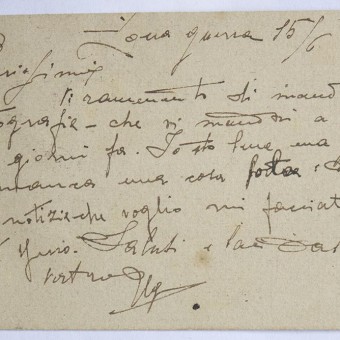 Zona guerra 15/6
rissimi
Vi rammento di mand
tografia - che vi mandai a
giorni fa. Io sto bene ma
manca una cosa
notizia che voglio mi facciat
Saluti e baci dal
vostro